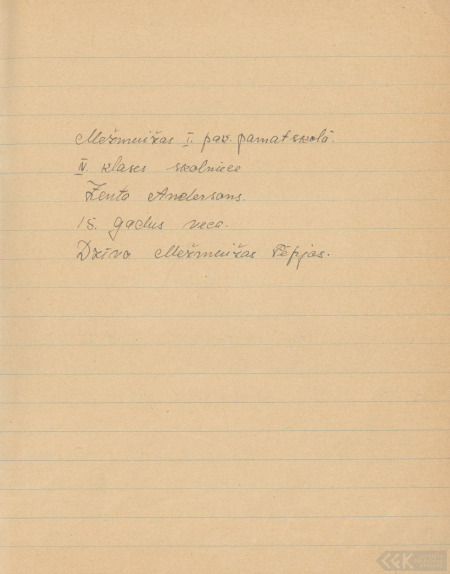 Mežmuižas I. pav. pamatskolā.
IV. klases skolniece
Zenta Andersons.
15. gadus veca.
Dzīvo Mežmuižas Tēpjas.